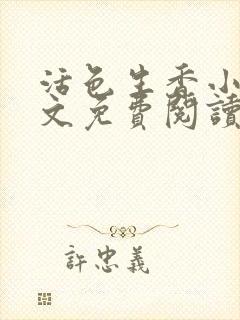 活色生香小
文免費閱讀
許忠義